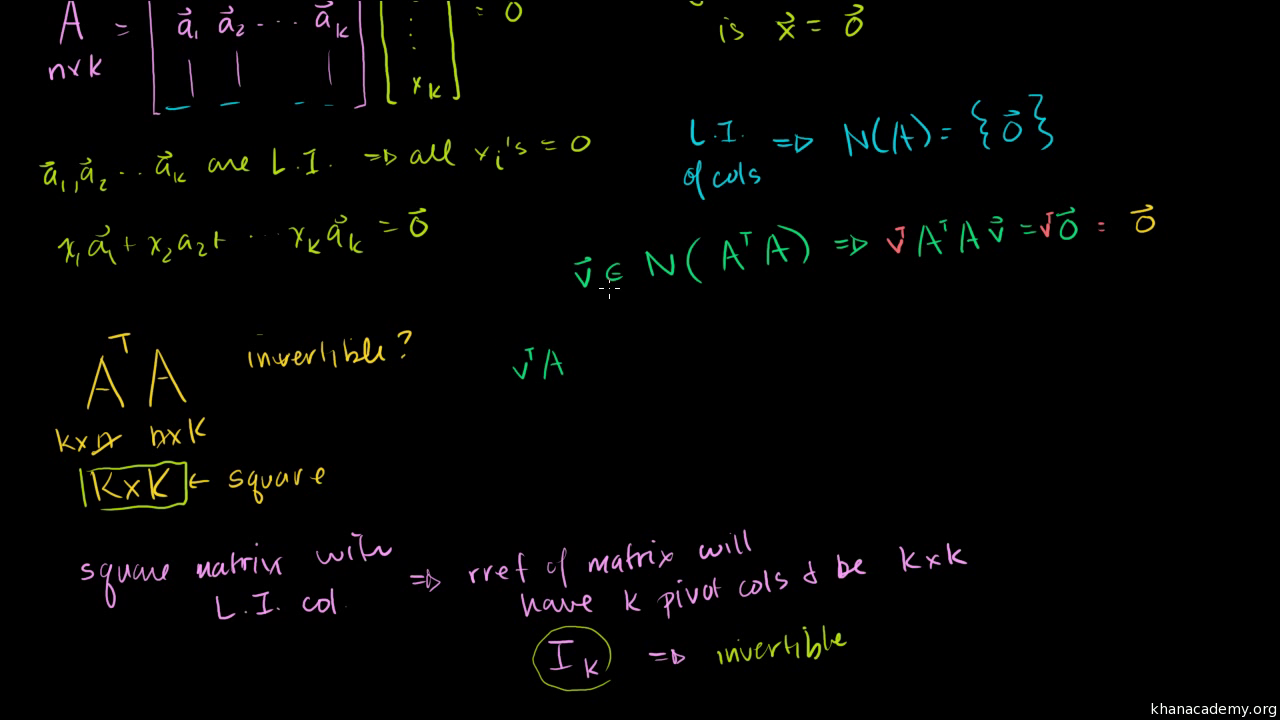 A = [ a⃗₁ a⃗₂ ... a⃗ₖ ] [ ⋮ xₖ ] = 0
n×k
is x⃗ = 0⃗
L.I. of cols ⇒ N(A) = {0⃗}
a⃗₁, a⃗₂ ... a⃗ₖ are L.I. ⇒ all xᵢ's = 0
x₁a⃗₁ + x₂a₂ + ... xₖa⃗ₖ = 0⃗
v⃗ ∈ N(AᵀA) ⇒ vᵀAᵀAv⃗ = vᵀ0⃗ = 0⃗
AᵀA invertible?
vᵀA
k×n n×k
k×k ← square
square matrix with L.I. col ⇒ rref of matrix will
have k pivot cols & be k×k
Iₖ ⇒ invertible
khanacademy.org